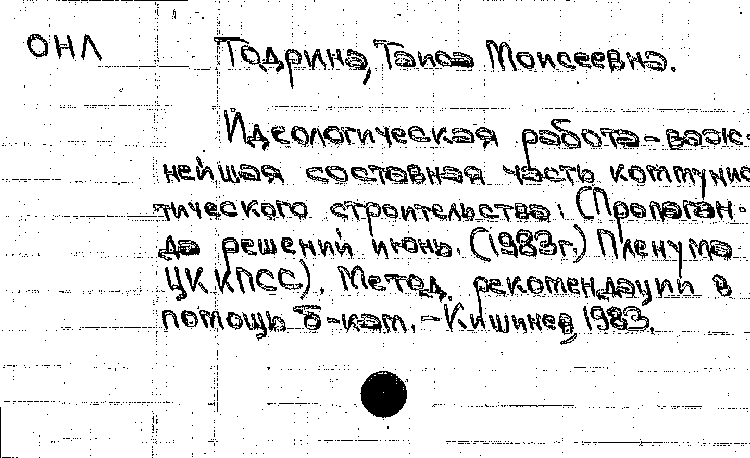 ОНЛ
Тодрина, Таиса Моисеевна.
Идеологическая работа - важ-
нейшая составная часть коммунис
тического строительства: (Пропаган-
да решений июнь. (1983г.) Пленума
ЦК КПСС). Метод. рекомендации в
помощь б-кам. - Кишинев, 1983.